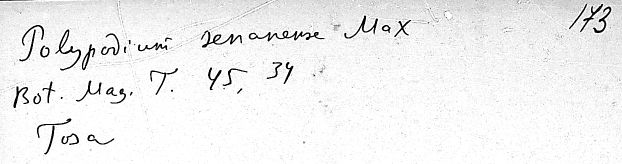 Polypodium senanense Max 173
Bot. Mag. T. 45, 34
Tosa